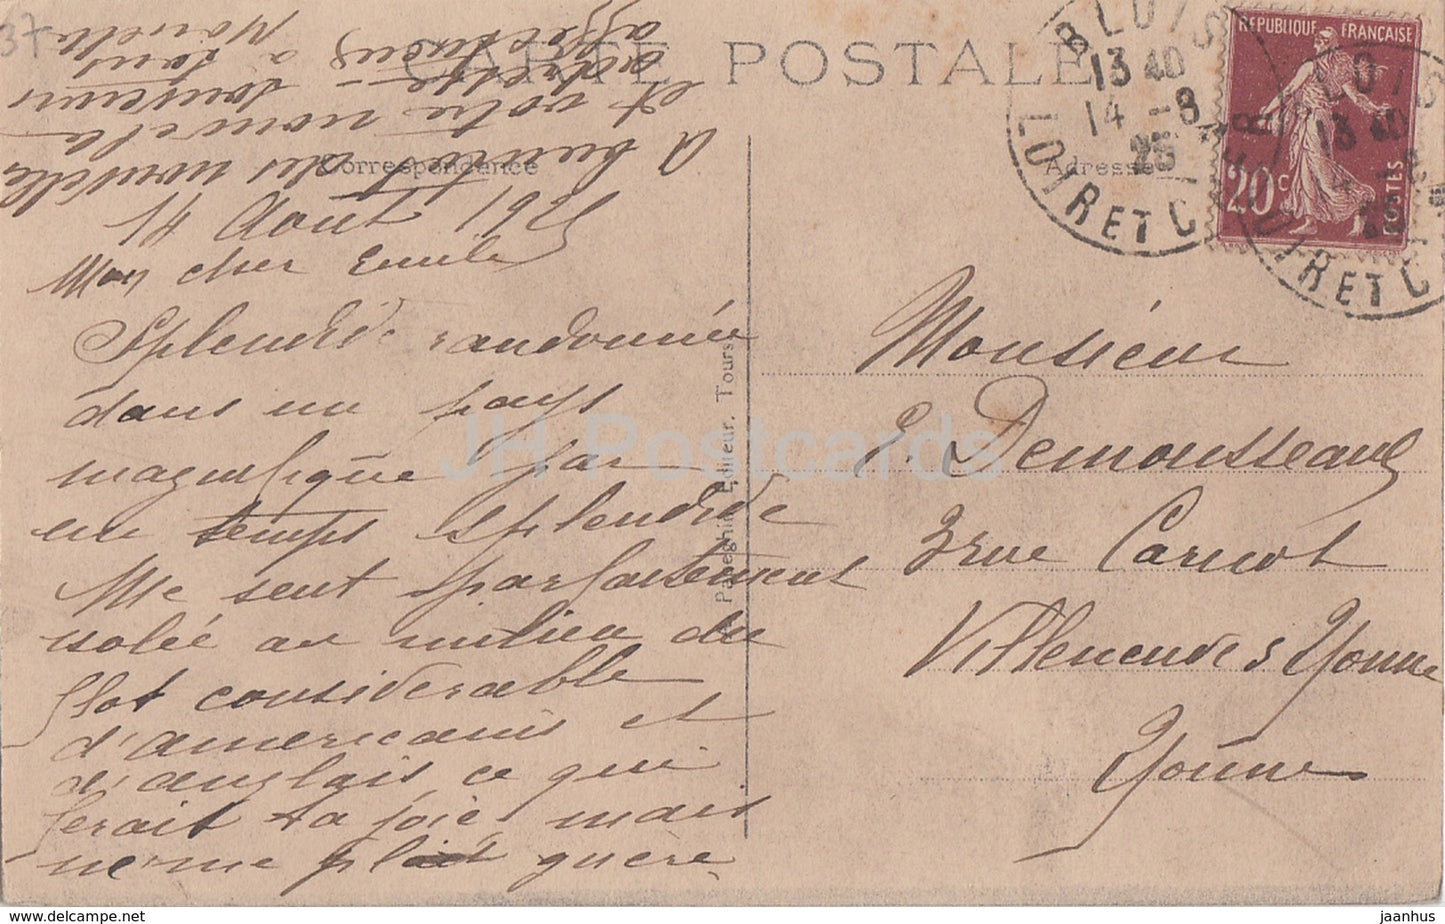 37
CARTE POSTALE
Correspondance
Adresse
BLOIS
13 40
14 -8
25
LOIR ET C
REPUBLIQUE FRANÇAISE
20c
POSTES
BLOIS
13 40
25
LOIR ET C
14 Août 1925
Mon cher Emile
Splendide randonnée
dans un pays
magnifique par
un temps splendide
Me sent parfaitement
isolée au milieu du
flot considerable
d'americains et
d'anglais ce qui
ferait ta joie mais
ne me plait guère
A bientôt des nouvelles
et votre nouvelle
adresse - souvenirs
affectueux à tous
Monsieur
E. Demousseaux
3 rue Carnot
Villeneuve s Yonne
Yonne
Papeghin Editeur. Tours.
JH Postcards
jaanhus